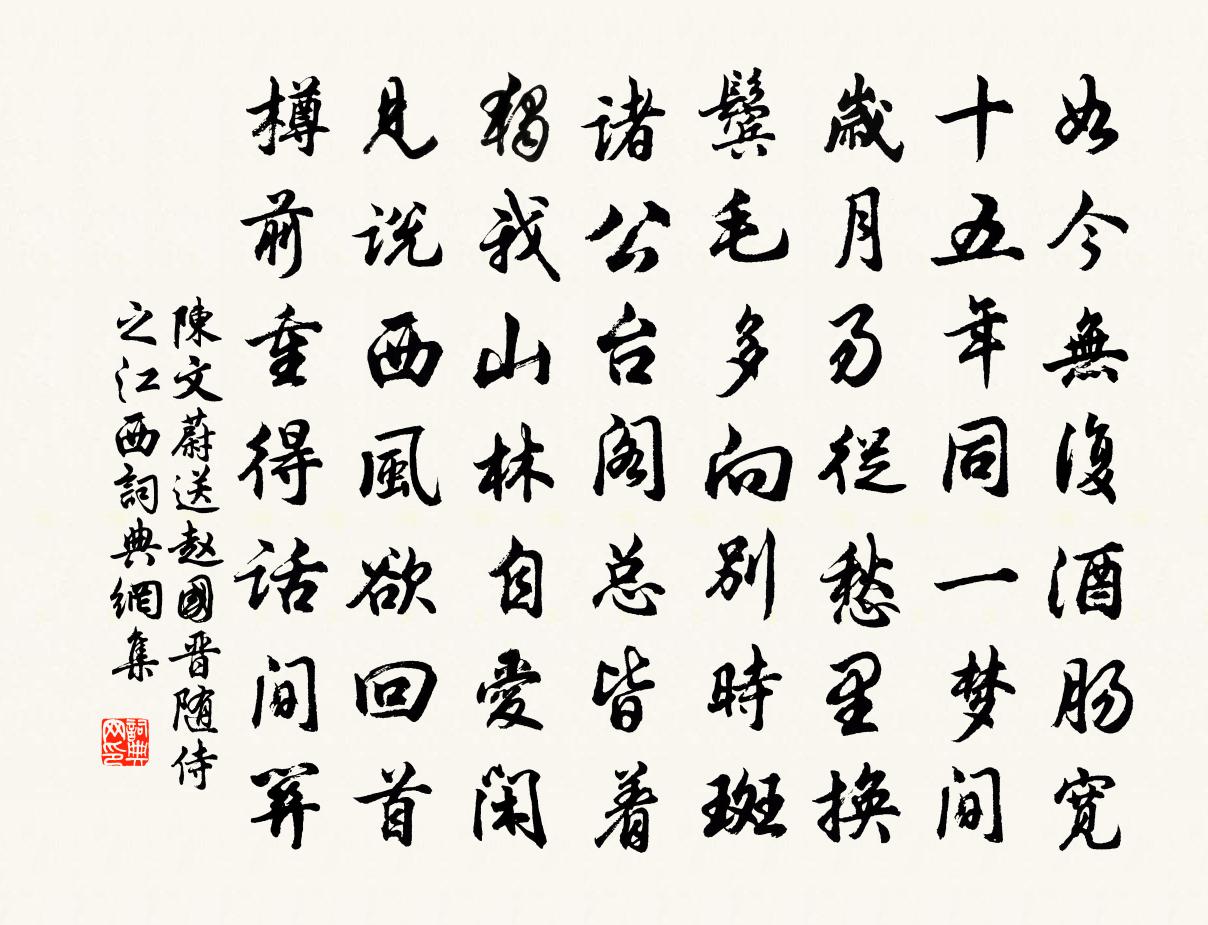 如今無復酒肠宽
十五年同一梦间
歲月易從愁里换
鬓毛多向别時斑
诸公台阁总皆着
獨我山林自愛闲
見说西風欲回首
樽前重得话间关
陳文蔚送赵國晋随侍
之江西詞典網集
詞典
网印